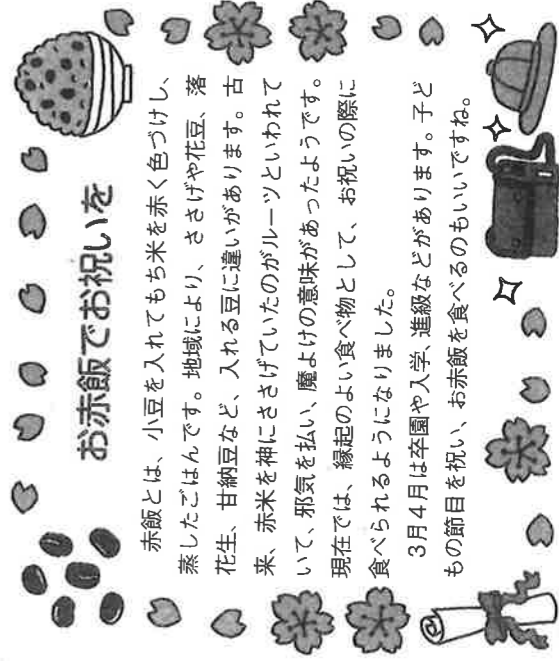 お赤飯でお祝いを
赤飯とは、小豆を入れてもち米を赤く色づけし、
蒸したごはんです。地域により、ささげや花豆、落
花生、甘納豆など、入れる豆に違いがあります。古
来、赤米を神にささげていたのがルーツといわれて
いて、邪気を払い、魔よけの意味があったようです。
現在では、縁起のよい食べ物として、お祝いの際に
食べられるようになりました。
3月4月は卒園や入学、進級などがあります。子ど
もの節目を祝い、お赤飯を食べるのもいいですね。